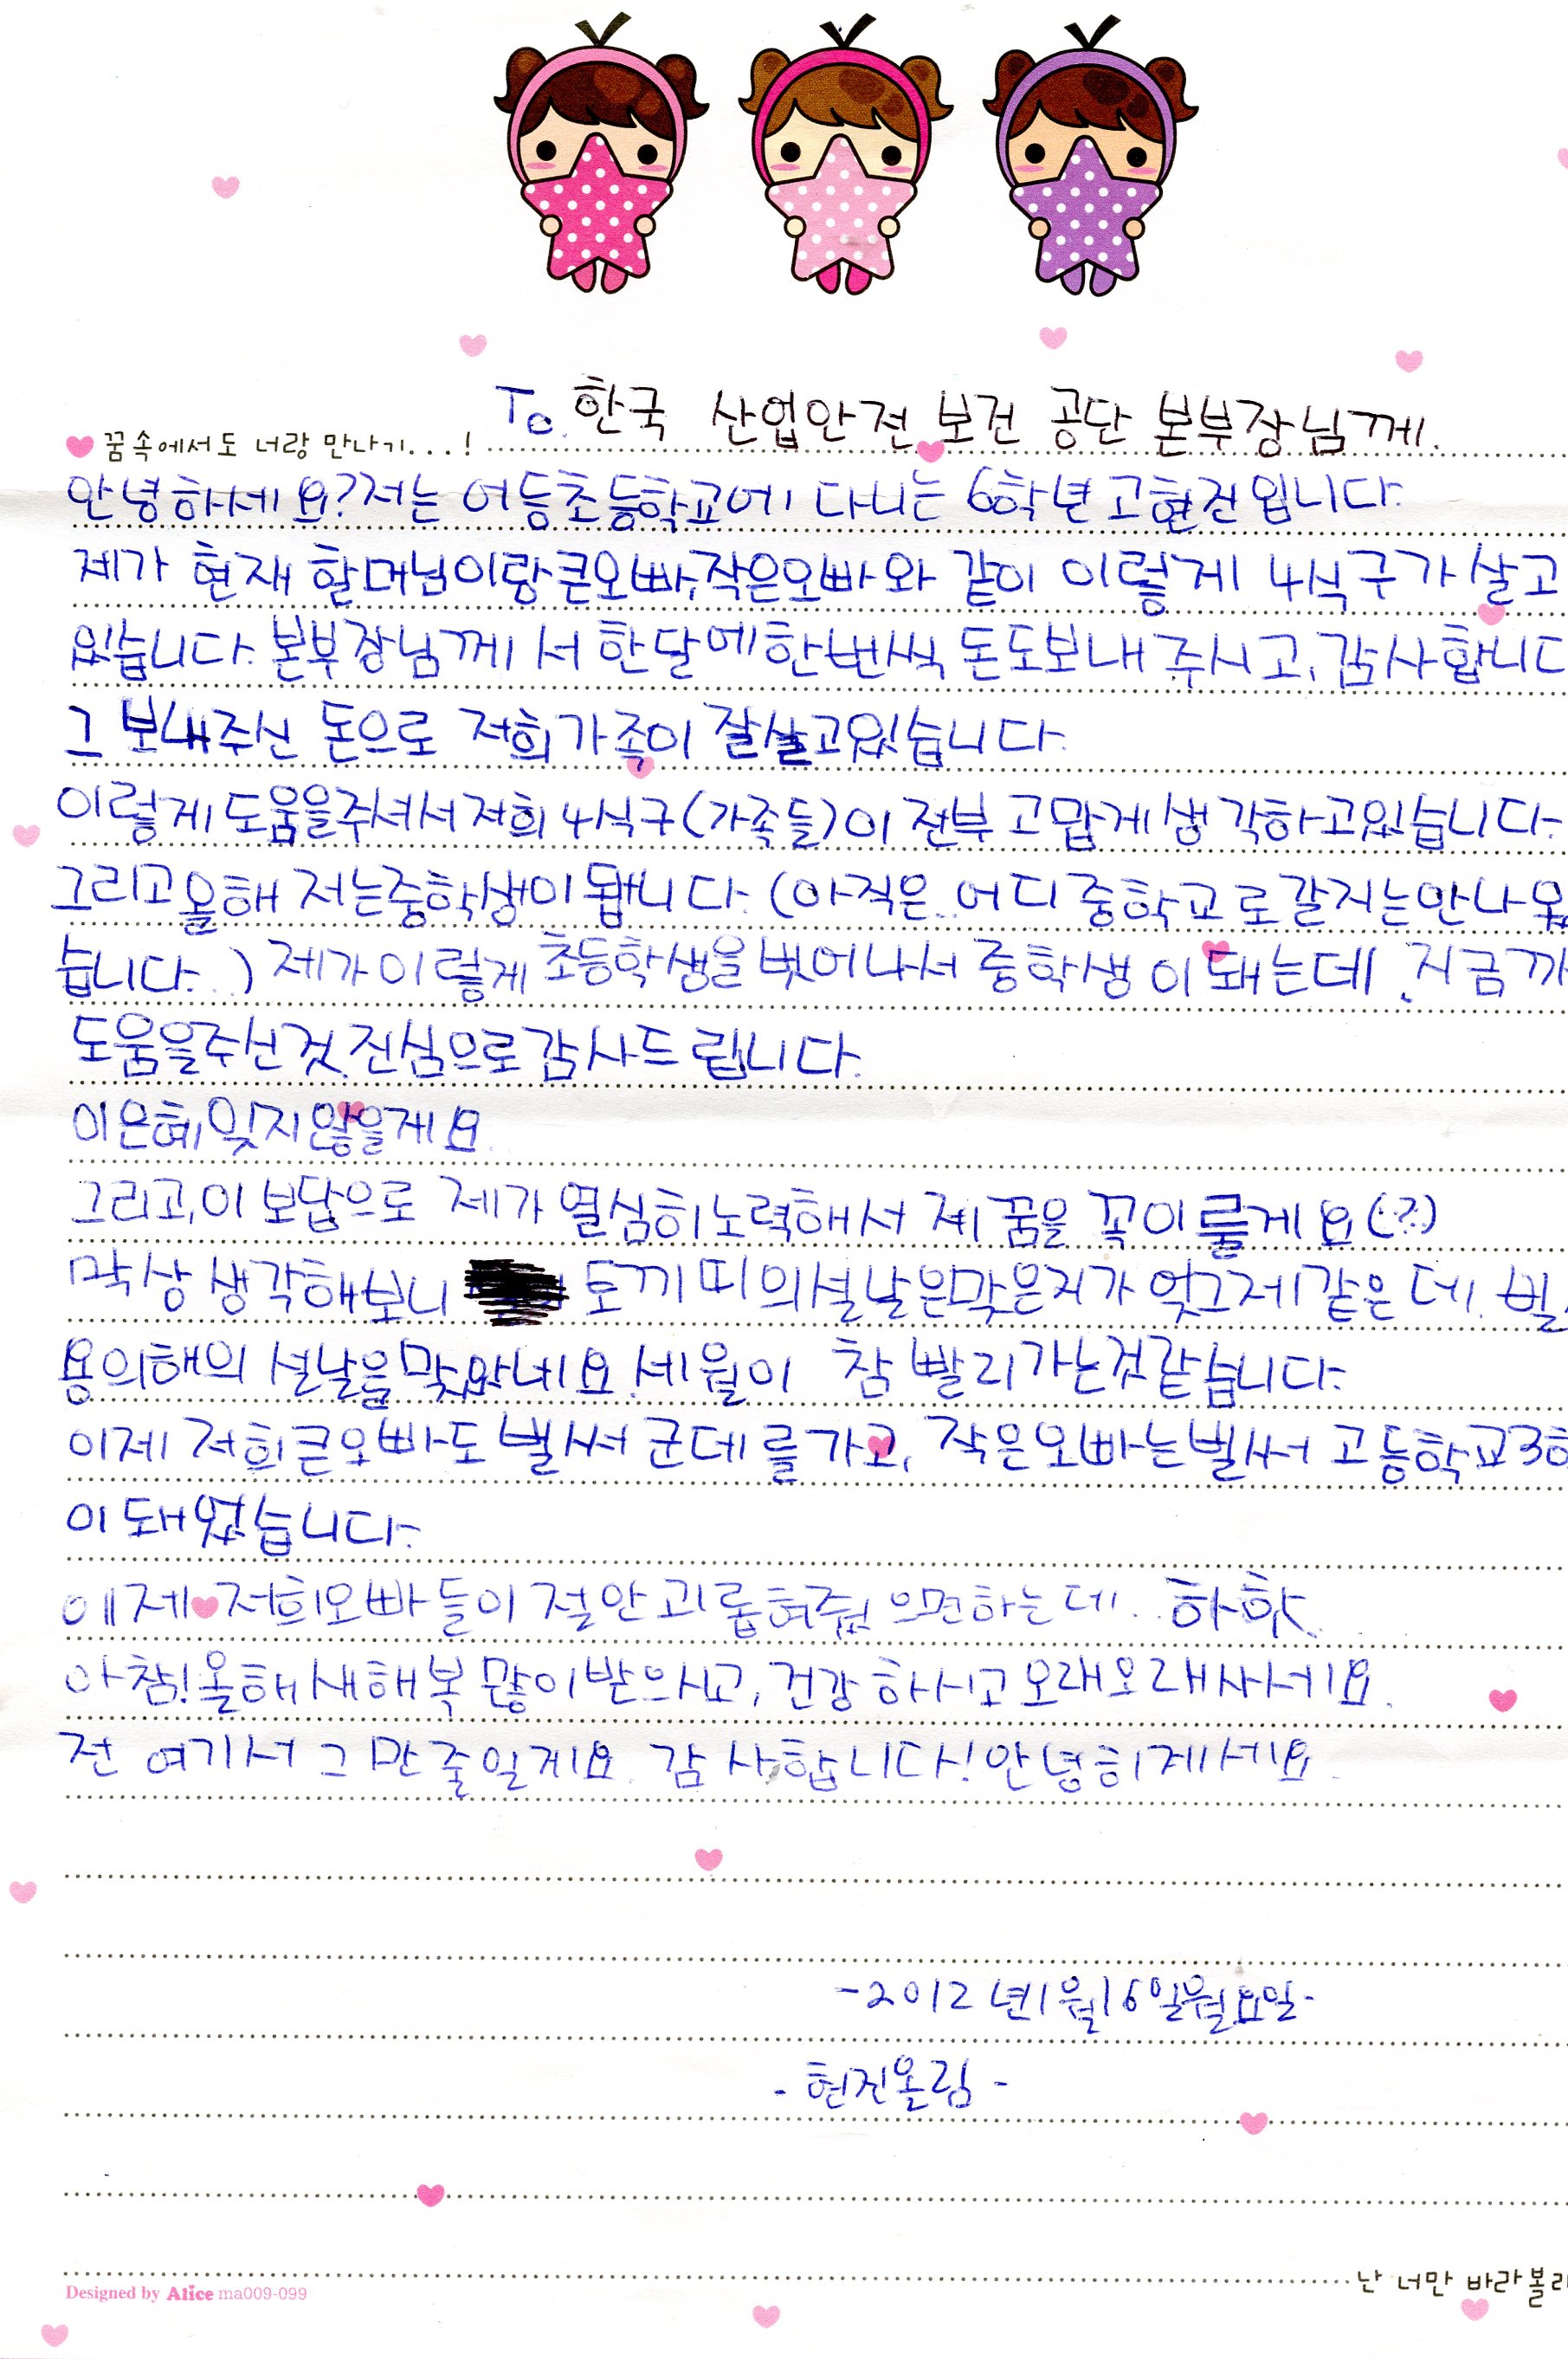 To. 한국 산업안전 보건 공단 본부장님께.
꿈속에서도 너랑 만나기...!
안녕하세요? 저는 어등초등학교에 다니는 6학년 고현진입니다.
제가 현재 할머님이랑 큰오빠, 작은오빠와 같이 이렇게 4식구가 살고
있습니다. 본부장님께서 한달에 한번씩 돈도 보내 주시고, 감사합니다
그 보내주신 돈으로 저희 가족이 잘살고있습니다.
이렇게 도움을주셔서 저희 4식구(가족들)이 전부 고맙게 생각하고있습니다.
그리고 올해 저는중학생이 됩니다. (아직은.. 어디 중학교로 갈지는안나왔
습니다..) 제가 이렇게 초등학생을 벗어나서 중학생이 돼는데, 지금까
도움을주신것, 진심으로 감사드립니다.
이은혜 잊지않을게요.
그리고, 이 보답으로 제가 열심히노력해서 제 꿈을 꼭이룰게요(?)
막상 생각해보니 토끼띠의설날은맞은지가 엊그제같은데, 벌
용의해의 설날을맞았네요. 세월이 참 빨리가는것같습니다.
이제 저희큰오빠도 벌써 군데를가고, 작은오빠는벌써 고등학교3학
이 돼었습니다.
에제 저희오빠들이 절안괴롭혀줬으면하는데.. 하핫
아참! 올해새해복 많이받으시고, 건강하시고 오래오래사세요.
전 여기서 그만줄일게요. 감사합니다! 안녕히계세요.
-2012년1월16일월요일-
- 현진올림 -
난 너만 바라볼래
Designed by Alice ma009-099